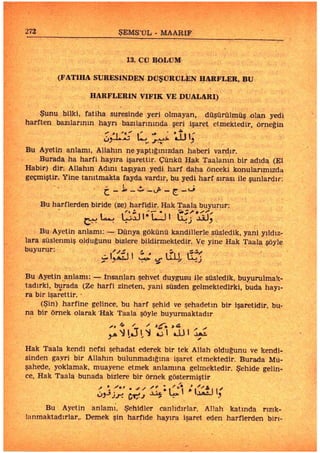 272 ŞEMS'ÜL - MAARİF
13. CÜ BÖLÜM
(FATIHA SURESINDEN DÜŞÜRÜLEN HARFLER, BU
HARFLERIN VIFIK VE DUALARI)
Şunu bilki, fatiha suresinde yeri olmayan, düşürülmüş olan yedi
harften bazılarının hayrı bazılarınında şeri işaret etmektedir, örneğin
Bu Ayetin anlamı, Allahın ne yaptığınızdan haberi vardır.
Burada ha harfi hayıra işarettir. Çünkü Hak Taalanın bir adıda (El
Habir) dir. Allahın Adını taşıyan yedi harf daha önceki konularımızda
geçmiştir. Yine tanıtmakta fayda vardır, bu yedi harf sırası ile şunlardır:
Bu harflerden biride (ze) harfidir. Hak Taala buyurur:
Bu Ayetin anlamı: — Dünya gökünü kandillerle süsledik, yani yıldız-
lara süslenmiş olduğunu bizlere bildirmektedir. Ve yine Hak Taala şöyle
buyurur:
Bu Ayetin anlamı: — İnsanları şehvet duygusu ile süsledik, buyurulmak-
tadırki, burada (Ze harfi zineten, yani süsden gelmektedirki, buda hayı-
ra bir işarettir.
(Şin) harfine gelince, bu harf şehid ve şehadetin bir işaretidir, bu-
na bir örnek olarak Hak Taala şöyle buyurmaktadır
Hak Taala kendi nefsi şehadat ederek bir tek Allah olduğunu ve kendi-
sinden gayri bir Allahın bulunmadığına işaret etmektedir. Burada Mü-
şahede, yoklamak, muayene etmek anlamına gelmektedir. Şehide gelin-
ce, Hak Taala bunada bizlere bir örnek göstermiştir
Bu Ayetin anlamı, Şehidler canlıdırlar, Allah katında rızık-
lanmaktadırlar,. Demek şin harfide hayıra işaret eden harflerden biri-